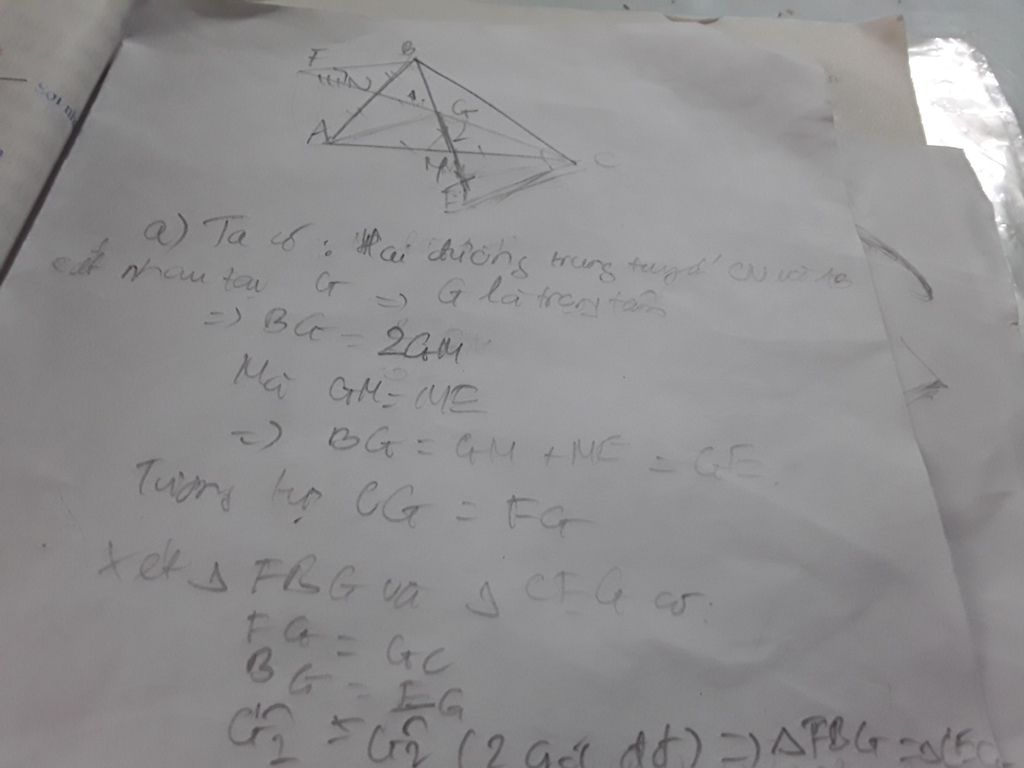 F B
N 1 G
A 2
M C
E
a) Ta có: Hai đường trung tuyến CN và
cắt nhau tại G => G là trọng tâm
=> BG = 2GM
Mà GM = ME
=> BG = GM + ME = GE
Tương tự CG = FG
Xét Δ FBG và Δ CEG có:
FG = GC
BG = EG
Ĝ1 = Ĝ2 (2 góc đđ) => ΔFBG = Δ